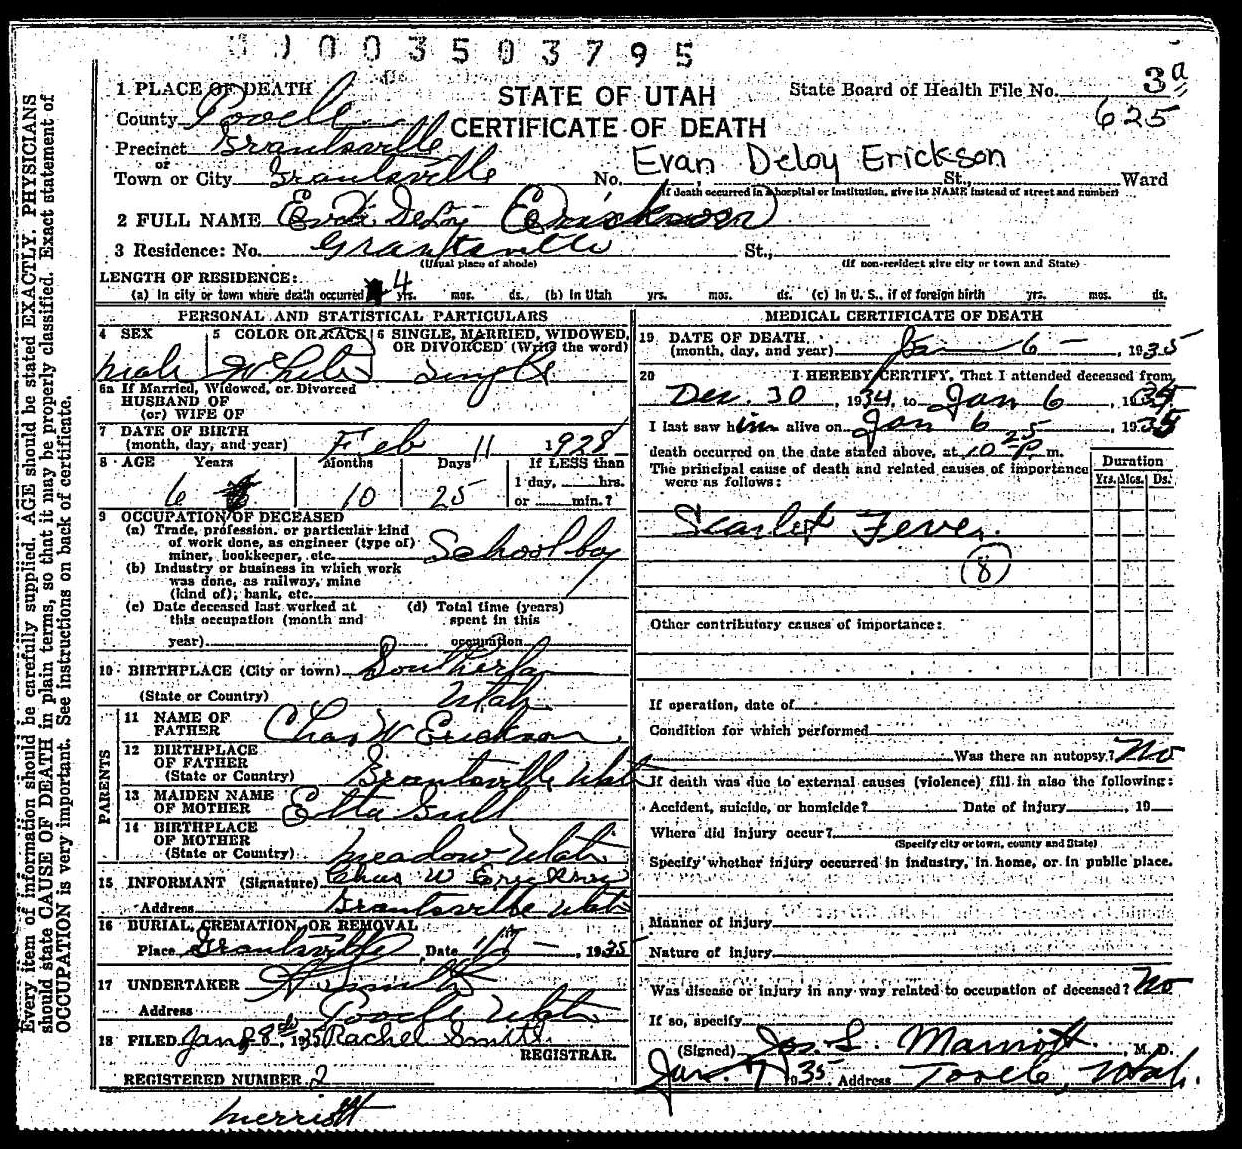 0003503795
3a
625
1 PLACE OF DEATH
STATE OF UTAH
State Board of Health File No.
County Tooele
CERTIFICATE OF DEATH
Precinct Grantsville
Evan Deloy Erickson
or
Town or City Grantsville No. St., Ward
(If death occurred in a hospital or institution, give its NAME instead of street and number)
2 FULL NAME Evan DeLoy Erickson
3 Residence: No. Grantsville St.,
(Usual place of abode) (If non-resident give city or town and State)
LENGTH OF RESIDENCE:
(a) In city or town where death occurred 4 yrs. mos. ds. (b) In Utah yrs. mos. ds. (c) In U. S., if of foreign birth yrs. mos. ds.
PERSONAL AND STATISTICAL PARTICULARS
4 SEX
male
5 COLOR OR RACE
White
6 SINGLE, MARRIED, WIDOWED,
OR DIVORCED (Write the word)
Single
6a If Married, Widowed, or Divorced
HUSBAND OF
(or) WIFE OF
7 DATE OF BIRTH
(month, day, and year) Feb 11 1928
8 AGE Years Months Days If LESS than
6 10 25 1 day, hrs.
or min.?
9 OCCUPATION OF DECEASED
(a) Trade, profession, or particular kind
of work done, as engineer (type of)
miner, bookkeeper, etc. School boy
(b) Industry or business in which work
was done, as railway, mine
(kind of); bank, etc.
(c) Date deceased last worked at
this occupation (month and
year)
(d) Total time (years)
spent in this
occupation
10 BIRTHPLACE (City or town)
(State or Country) Utah
PARENTS
11 NAME OF
FATHER Chas W Erickson
12 BIRTHPLACE
OF FATHER
(State or Country) Grantsville Utah
13 MAIDEN NAME
OF MOTHER Etta Gull
14 BIRTHPLACE
OF MOTHER
(State or Country) Meadow Utah
15 INFORMANT (Signature) Chas W Erickson
Address Grantsville Utah
16 BURIAL, CREMATION, OR REMOVAL
Place Grantsville Date 1/ - , 1935
17 UNDERTAKER A Smith
Address Tooele Utah
18 FILED Jan 8th, 1935 Rachel Smith
REGISTRAR.
REGISTERED NUMBER 2
Merriott
MEDICAL CERTIFICATE OF DEATH
19 DATE OF DEATH
(month, day, and year) Jan 6 - , 1935
20 I HEREBY CERTIFY, That I attended deceased from
Dec. 30, 1934, to Jan 6, 1935
I last saw him alive on Jan 6, 1935
death occurred on the date stated above, at 10 25 P. m.
The principal cause of death and related causes of importance
were as follows:
Duration
Yrs. Mos. Ds.
Scarlet Fever.
(8)
Other contributory causes of importance:
If operation, date of
Condition for which performed
Was there an autopsy? No
If death was due to external causes (violence) fill in also the following:
Accident, suicide, or homicide? Date of injury , 19
Where did injury occur?
(Specify city or town, county and State)
Specify whether injury occurred in industry, in home, or in public place.
Manner of injury
Nature of injury
Was disease or injury in any way related to occupation of deceased? No
If so, specify
(Signed) Jos. S. Marriott. M. D.
Jan. 7 1935 Address Tooele, Utah.
Every item of information should be carefully supplied. AGE should be stated EXACTLY. PHYSICIANS
should state CAUSE OF DEATH in plain terms, so that it may be properly classified. Exact statement of
OCCUPATION is very important. See instructions on back of certificate.